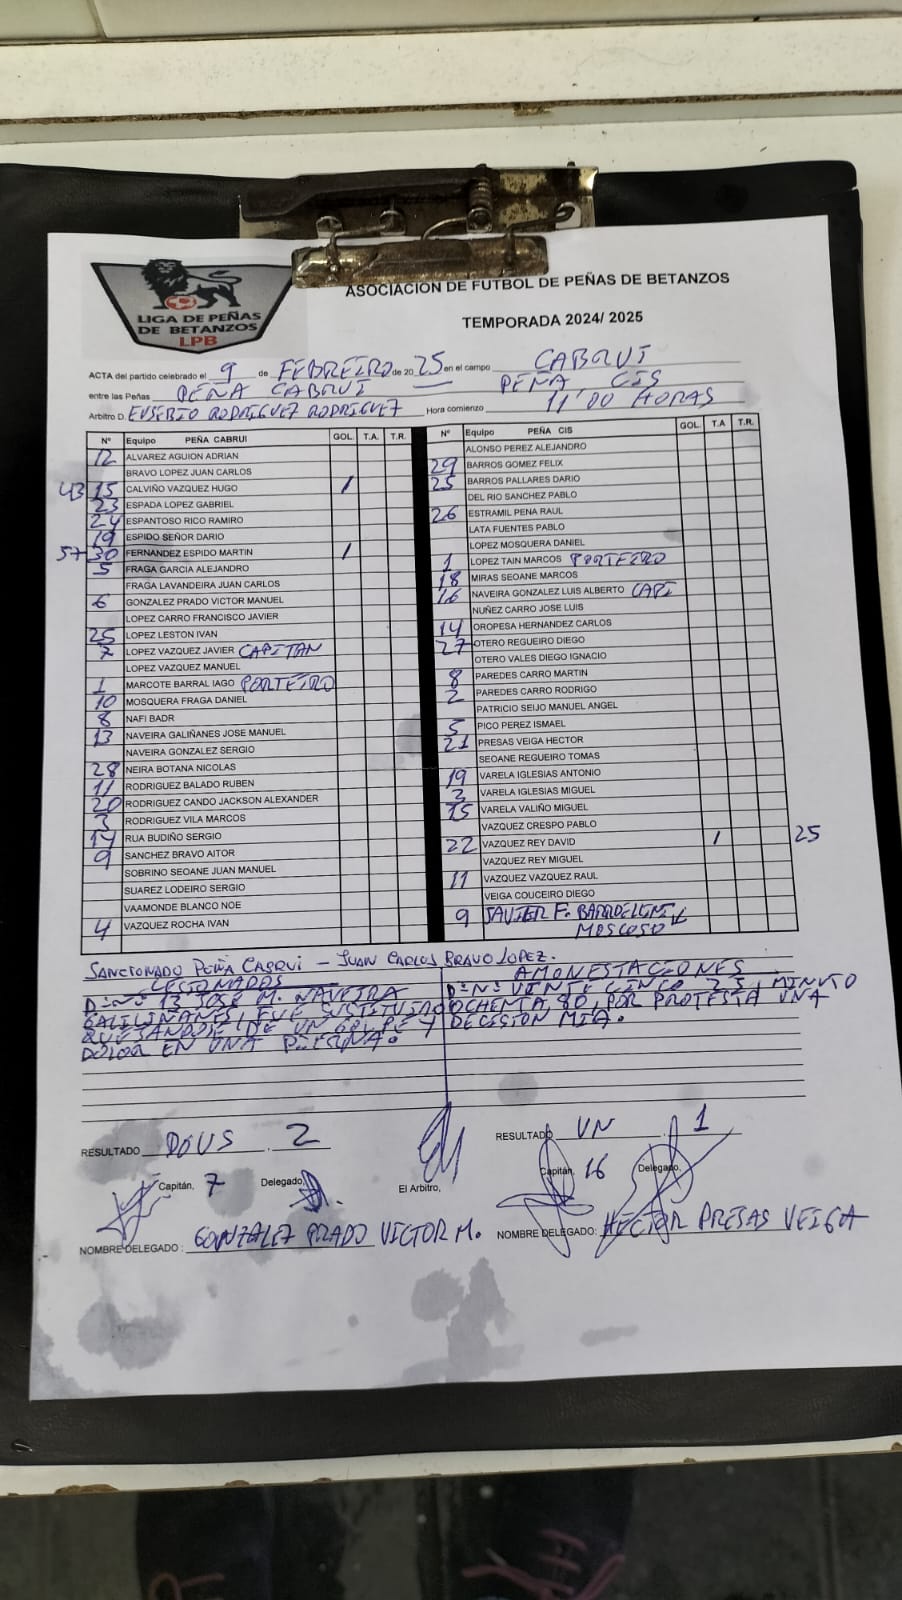 LIGA DE PEÑAS
DE BETANZOS
LPB
ASOCIACION DE FUTBOL DE PEÑAS DE BETANZOS
TEMPORADA 2024/ 2025
ACTA del partido celebrado el 9 de FEBREIRO de 2025 en el campo CABRUI
entre las Peñas PEÑA CABRUI PEÑA CIS
Arbitro D. EUSEBIO RODRIGUEZ RODRIGUEZ Hora comienzo 11'00 HORAS
Nº Equipo PEÑA CABRUI GOL. T.A. T.R.
12 ALVAREZ AGUION ADRIAN
BRAVO LOPEZ JUAN CARLOS
43 15 CALVIÑO VAZQUEZ HUGO 1
23 ESPADA LOPEZ GABRIEL
24 ESPANTOSO RICO RAMIRO
19 ESPIDO SEÑOR DARIO
57 30 FERNANDEZ ESPIDO MARTIN 1
5 FRAGA GARCIA ALEJANDRO
FRAGA LAVANDEIRA JUAN CARLOS
6 GONZALEZ PRADO VICTOR MANUEL
LOPEZ CARRO FRANCISCO JAVIER
25 LOPEZ LESTON IVAN
7 LOPEZ VAZQUEZ JAVIER CAPITAN
LOPEZ VAZQUEZ MANUEL
1 MARCOTE BARRAL IAGO PORTEIRO
10 MOSQUERA FRAGA DANIEL
8 NAFI BADR
13 NAVEIRA GALIÑANES JOSE MANUEL
NAVEIRA GONZALEZ SERGIO
28 NEIRA BOTANA NICOLAS
11 RODRIGUEZ BALADO RUBEN
20 RODRIGUEZ CANDO JACKSON ALEXANDER
3 RODRIGUEZ VILA MARCOS
14 RUA BUDIÑO SERGIO
9 SANCHEZ BRAVO AITOR
SOBRINO SEOANE JUAN MANUEL
SUAREZ LODEIRO SERGIO
VAAMONDE BLANCO NOE
4 VAZQUEZ ROCHA IVAN
Nº Equipo PEÑA CIS GOL. T.A T.R.
ALONSO PEREZ ALEJANDRO
29 BARROS GOMEZ FELIX
25 BARROS PALLARES DARIO
DEL RIO SANCHEZ PABLO
26 ESTRAMIL PENA RAUL
LATA FUENTES PABLO
LOPEZ MOSQUERA DANIEL
1 LOPEZ TAIN MARCOS PORTEIRO
18 MIRAS SEOANE MARCOS
16 NAVEIRA GONZALEZ LUIS ALBERTO CAPI
NUÑEZ CARRO JOSE LUIS
14 OROPESA HERNANDEZ CARLOS
27 OTERO REGUEIRO DIEGO
OTERO VALES DIEGO IGNACIO
8 PAREDES CARRO MARTIN
2 PAREDES CARRO RODRIGO
PATRICIO SEIJO MANUEL ANGEL
5 PICO PEREZ ISMAEL
21 PRESAS VEIGA HECTOR
SEOANE REGUEIRO TOMAS
19 VARELA IGLESIAS ANTONIO
3 VARELA IGLESIAS MIGUEL
15 VARELA VALIÑO MIGUEL
VAZQUEZ CRESPO PABLO
22 VAZQUEZ REY DAVID 1 25
VAZQUEZ REY MIGUEL
11 VAZQUEZ VAZQUEZ RAUL
VEIGA COUCEIRO DIEGO
9 JAVIER F.
MOSCOSO
SANCIONADO PEÑA CABRUI - JUAN CARLOS BRAVO LOPEZ.
LESIONADOS
D.Nº 13 JOSE M. NAVEIRA
GALILIÑANES, FUE SUSTITUIDO
QUEJANDOSE DE UN GOLPE Y
DOLOR EN UNA PIERNA.
AMONESTACIONES
D.Nº VINTE CINCO 25, MINUTO
OCHENTA, 80, POR PROTESTA UNA
DECISION MIA.
RESULTADO DOUS . 2
RESULTADO UN . 1
Capitán, 7 Delegado, El Arbitro, Capitán, 16 Delegado,
NOMBRE DELEGADO : GONZALEZ PRADO VICTOR M.
NOMBRE DELEGADO: HECTOR PRESAS VEIGA